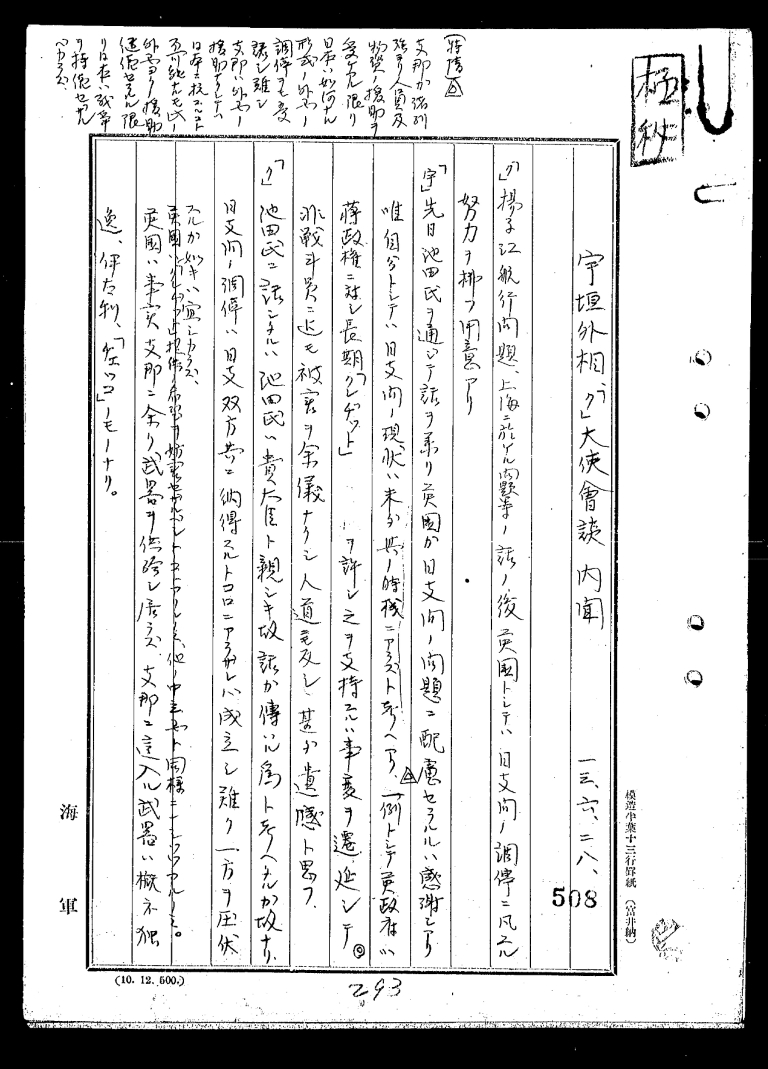 極秘
宇垣外相、「ク」大使會談内聞
一三、六、二八、
508
「ク」揚子江航行問題、上海ニ於ケル問題等ノ話ノ後英國トシテハ日支間ノ調停ニ凡ユル
努力ヲ拂フ用意アリ
「宇」先日池田氏ヲ通シテ話ヲ承リ英國カ日支間ノ問題ニ配慮セラルルハ感謝シアリ
唯自分トシテハ日支間ノ現状ハ未タ其ノ時機ニアラスト考ヘアリ、一例トシテ英政府ハ
蔣政權ニ対シ長期「クレヂット」ヲ許シ之ヲ支持スルハ事変ヲ遷延シテ
非戦斗員ニ迄モ被害ヲ余儀ナクシ人道ニモ反シ甚タ遺憾ト思フ、
「ク」池田氏ニ話シタルハ池田氏ハ貴大臣ト親シキ故話カ傳ハル為ト考ヘタルカ故ナリ、
日支間ノ調停ハ日支双方共ニ納得スルトコロニアラサレハ成立シ難ク一方ヲ圧伏
スルカ如キハ宜シカラス、
英國ハ「クレヂット」提供ノ希望ヲ
英國ハ事実支那ニ余リ武器ヲ供給シ居ラス、支那ニ這入ル武器ハ概ネ独
逸、伊太利、「チェッコ」ノモノナリ。
(特情)
支那カ諸列
強ヨリ人員及
物資ノ援助ヲ
受ケサル限リ
日本ハ如何ナル
形式ノ外部ノ
調停ヲモ受
諾シ難シ
支那ハ外部ノ
援助ナケレハ
日本ニ抗スルコト
不可能ナルモ此ノ
外部ヨリノ援助
継続セラルル限
リ日本ハ戦争
ヲ持続セサル
ヘカラス、
海軍
模造半葉十三行罫紙(富井納)
(10. 12. 500.)
293